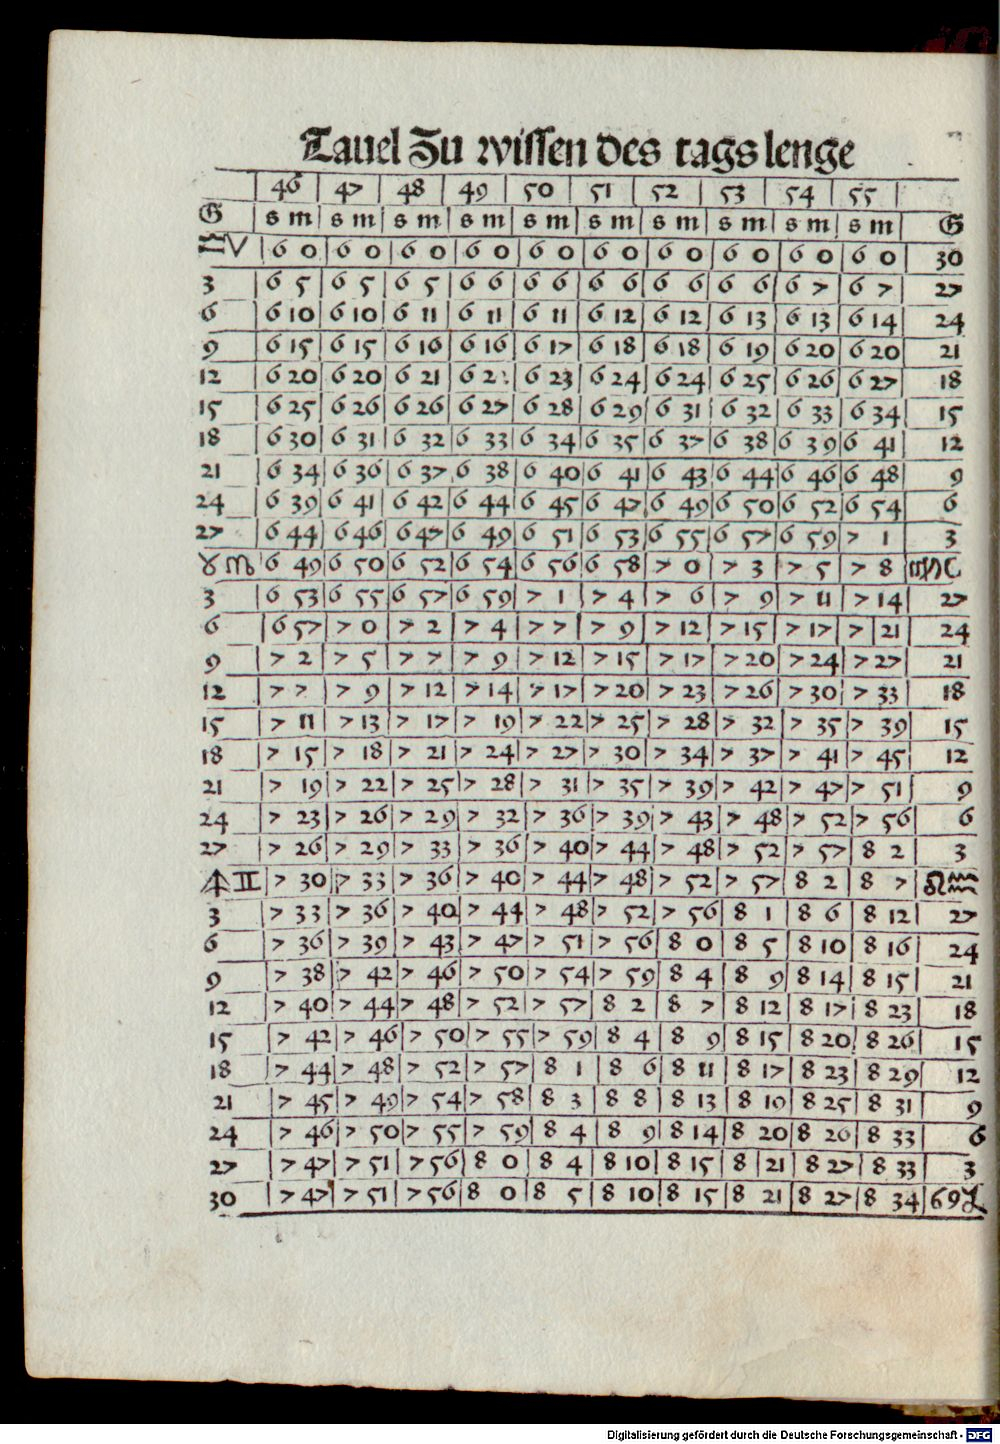 Tauel Zu wissen des tags lenge
46 47 48 49 50 51 52 53 54 55
G s m s m s m s m s m s m s m s m s m s m G
♎ V 6 0 6 0 6 0 6 0 6 0 6 0 6 0 6 0 6 0 6 0 30
3 6 5 6 5 6 5 6 6 6 6 6 6 6 6 6 6 6 7 6 7 27
6 6 10 6 10 6 11 6 11 6 11 6 12 6 12 6 13 6 13 6 14 24
9 6 15 6 15 6 16 6 16 6 17 6 18 6 18 6 19 6 20 6 20 21
12 6 20 6 20 6 21 6 2 6 23 6 24 6 24 6 25 6 26 6 27 18
15 6 25 6 26 6 26 6 27 6 28 6 29 6 31 6 32 6 33 6 34 15
18 6 30 6 31 6 32 6 33 6 34 6 35 6 37 6 38 6 39 6 41 12
21 6 34 6 36 6 37 6 38 6 40 6 41 6 43 6 44 6 46 6 48 9
24 6 39 6 41 6 42 6 44 6 45 6 47 6 49 6 50 6 52 6 54 6
27 6 44 6 46 6 47 6 49 6 51 6 53 6 55 6 57 6 59 7 1 3
♉ ♏ 6 49 6 50 6 52 6 54 6 56 6 58 7 0 7 3 7 5 7 8 ♍
3 6 53 6 55 6 57 6 59 7 1 7 4 7 6 7 9 7 11 7 14 27
6 6 57 7 0 7 2 7 4 7 7 7 9 7 12 7 15 7 17 7 21 24
9 7 2 7 5 7 7 7 9 7 12 7 15 7 17 7 20 7 24 7 27 21
12 7 7 7 9 7 12 7 14 7 17 7 20 7 23 7 26 7 30 7 33 18
15 7 11 7 13 7 17 7 19 7 22 7 25 7 28 7 32 7 35 7 39 15
18 7 15 7 18 7 21 7 24 7 27 7 30 7 34 7 37 7 41 7 45 12
21 7 19 7 22 7 25 7 28 7 31 7 35 7 39 7 42 7 47 7 51 9
24 7 23 7 26 7 29 7 32 7 36 7 39 7 43 7 48 7 52 7 56 6
27 7 26 7 29 7 33 7 36 7 40 7 44 7 48 7 52 7 57 8 2 3
♐ ♊ 7 30 7 33 7 36 7 40 7 44 7 48 7 52 7 57 8 2 8 7 ♌ ♒
3 7 33 7 36 7 40 7 44 7 48 7 52 7 56 8 1 8 6 8 12 27
6 7 36 7 39 7 43 7 47 7 51 7 56 8 0 8 5 8 10 8 16 24
9 7 38 7 42 7 46 7 50 7 54 7 59 8 4 8 9 8 14 8 15 21
12 7 40 7 44 7 48 7 52 7 57 8 2 8 7 8 12 8 17 8 23 18
15 7 42 7 46 7 50 7 55 7 59 8 4 8 9 8 15 8 20 8 26 15
18 7 44 7 48 7 52 7 57 8 1 8 6 8 11 8 17 8 23 8 29 12
21 7 45 7 49 7 54 7 58 8 3 8 8 8 13 8 19 8 25 8 31 9
24 7 46 7 50 7 55 7 59 8 4 8 9 8 14 8 20 8 26 8 33 6
27 7 47 7 51 7 56 8 0 8 4 8 10 8 15 8 21 8 27 8 33 3
30 7 47 7 51 7 56 8 0 8 5 8 10 8 15 8 21 8 27 8 34 ♋ ♑
Digitalisierung gefördert durch die Deutsche Forschungsgemeinschaft - DFG